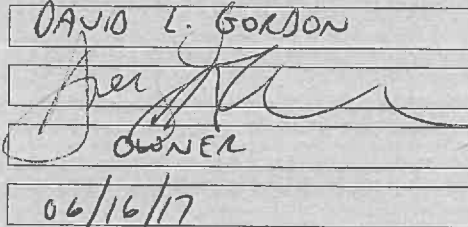 DAVID L. GORDON
OWNER
06/16/17